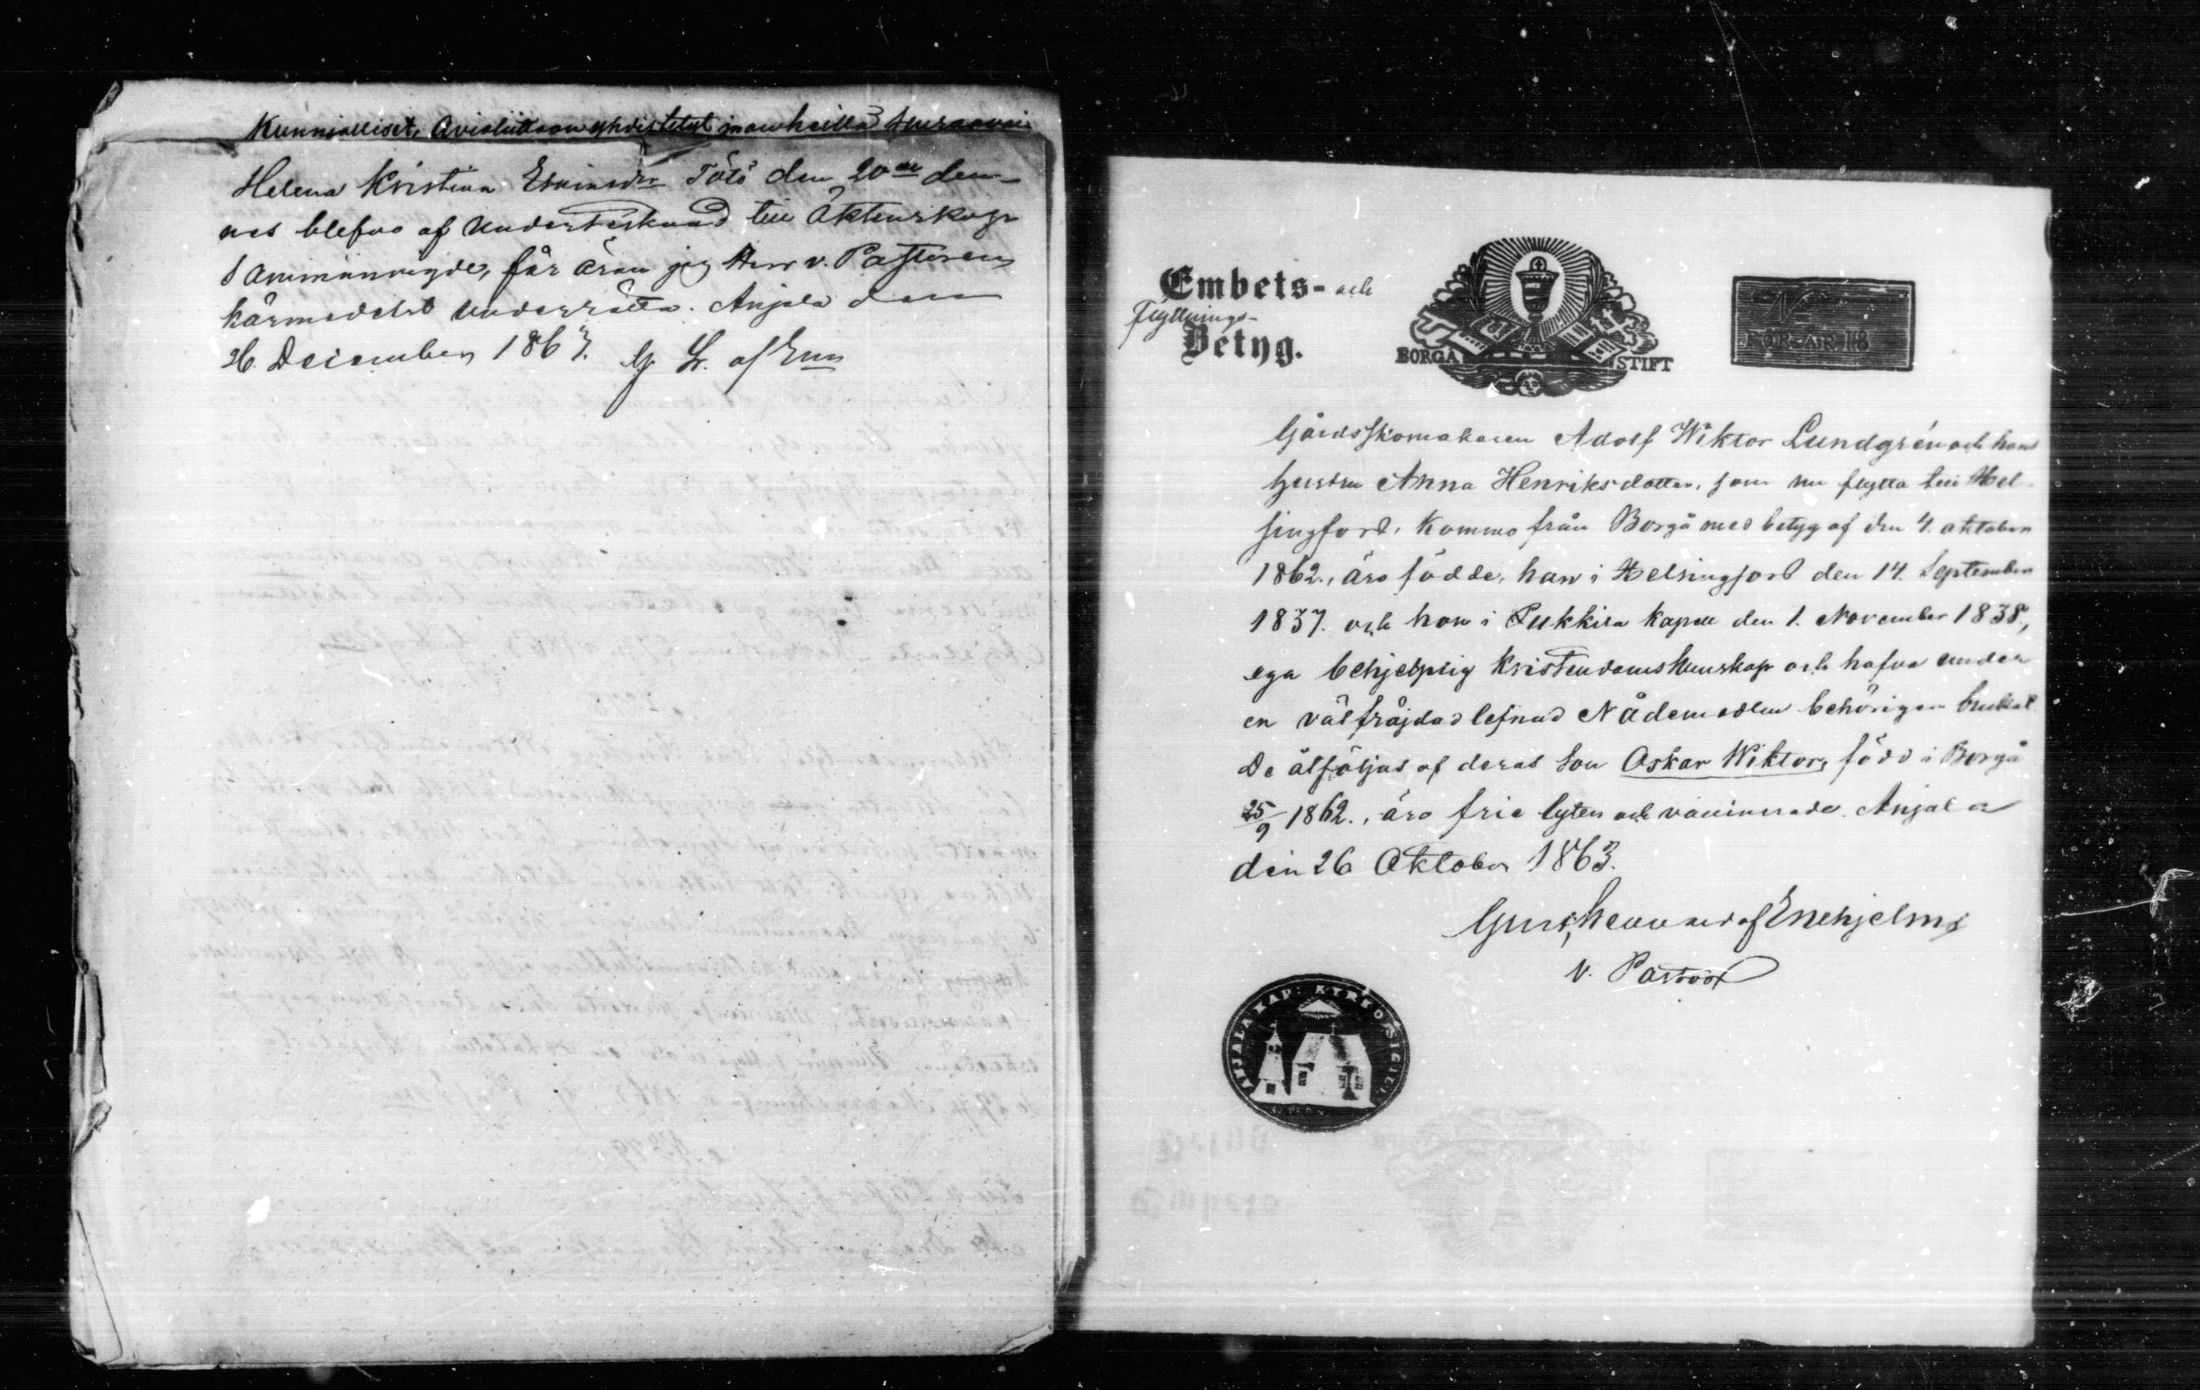 Kunnialliset, Avioliittoon yhdistetyt ja on heillä seuraavai
Helena Kristina Esaiasdr Tötö den 20de den-
nes blefvo af undertecknad till Äktenskaps
Sammanvigde, får äran jag Herr v. Pastoren
härmedelst underrätta. Anjala den
26 December 1863. G. L. af Enn
Embets- och
Flyttnings-
Betyg.
BORGÅ STIFT
No
FÖR ÅR 18
Gårdsskomakaren Adolf Wiktor Lundgrén och hans
hustru Anna Henriksdotter, som nu flytta till Hel-
singfors, kommo från Borgå med betyg af den 4. oktober
1862., äro födde, han i Helsingfors den 14. September
1837. och hon i Pukkila kapell den 1. November 1838.,
ega behjelplig kristendomskunskap och hafva under
en välfräjdad lefnad Nådemedlen behörigen brukat
De åtföljas af deras Son Oskar Wiktor, född i Borgå
25/9 1862., äro frie lyten och vaccinerade. Anjala
den 26 Oktober 1863.
Gust. Lennard af Enehjelm
v. Pastor
ANJALA KAP: KYRKO SIGILL